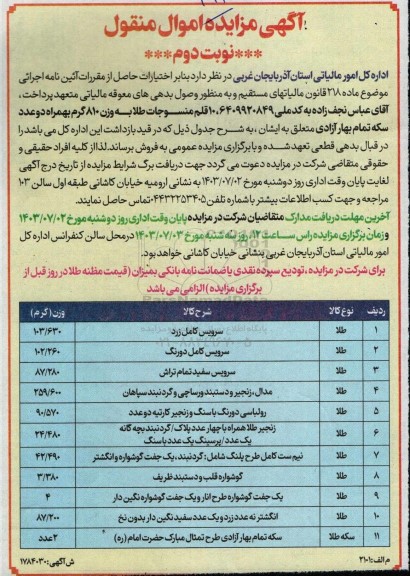 آگهی مزایده اموال منقول
***نوبت دوم***
اداره کل امور مالیاتی استان آذربایجان غربی در نظر دارد بنابر اختیارات حاصل از مقررات آئین نامه اجرائی
موضوع ماده ۲۱۸ قانون مالیاتهای مستقیم و به منظور وصول بدهی های معوقه مالیاتی متعهد پرداخت،
آقای عباس نجف زاده به کد ملی ۶۴۰۹۹۲۰۸۴۹، ۱۰ قلم منسوجات طلا به وزن ۸۱۰ گرم بهمراه دو عدد
سکه تمام بهار آزادی متعلق به ایشان، به شرح جدول ذیل که در قید بازداشت این اداره کل می باشد را
در قبال بدهی قطعی تعهد شده و با برگزاری مزایده عمومی به فروش برساند. لذا از کلیه افراد حقیقی و
حقوقی متقاضی شرکت در مزایده دعوت می گردد جهت دریافت برگ شرایط مزایده از تاریخ درج آگهی
لغایت پایان وقت اداری روز دوشنبه مورخ ۱۴۰۳/۰۷/۰۲ به نشانی ارومیه خیابان کاشانی طبقه اول سالن ۱۰۳
مراجعه و جهت کسب اطلاعات بیشتر با شماره تلفن ۰۴۴۳۲۲۵۳۴۰۵ تماس حاصل نمایند.
آخرین مهلت دریافت مدارک متقاضیان شرکت در مزایده پایان وقت اداری روز دوشنبه مورخ ۱۴۰۳/۰۷/۰۲
و زمان برگزاری مزایده راس ساعت ۱۲ روز سه شنبه مورخ ۱۴۰۳/۰۷/۰۳ در محل سالن کنفرانس اداره کل
امور مالیاتی استان آذربایجان غربی بنشانی خیابان کاشانی خواهد بود.
برای شرکت در مزایده، تودیع سپرده نقدی یا ضمانت نامه بانکی بمیزان (قیمت مظنه طلا در روز قبل از
برگزاری مزایده) الزامی می باشد
ردیف نوع کالا شرح کالا وزن (گرم)
۱ طلا سرویس کامل زرد ۱۰۳/۶۳۰
۲ طلا سرویس کامل دورنگ ۱۰۲/۲۶۰
۳ طلا سرویس سفید تمام تراش ۸۷/۲۸۰
۴ طلا مدال، زنجیر و دستبند ورساچی و گردنبند سپاهان ۲۵۹/۶۰۰
۵ طلا رولباسی دورنگ با سنگ و زنجیر کارتیه دو عدد ۹۰/۵۷۰
۶ طلا زنجیر طلا همراه با چهار عدد پلاک/گردنبند بچه گانه
یک عدد/پرسینگ یک عدد با سنگ ۲۴/۴۸۰
۷ طلا نیم ست کامل طرح پلنگ شامل: گردنبند، یک جفت گوشواره و انگشتر ۴۲/۴۹۰
۸ طلا گوشواره قلب و دستبند ظریف ۳/۳۸۰
۹ طلا یک جفت گوشواره طرح انار و یک جفت گوشواره نگین دار ۴
۱۰ طلا انگشتر نه عدد زرد و یک عدد سفید نگین دار بدون نخ ۸۷/۲۰۰
۱۱ سکه طلا سکه تمام بهار آزادی طرح تمثال مبارک حضرت امام (ره) ۲ عدد
م الف: ۲۱۰۱ ش آگهی: ۱۷۸۴۰۳۰